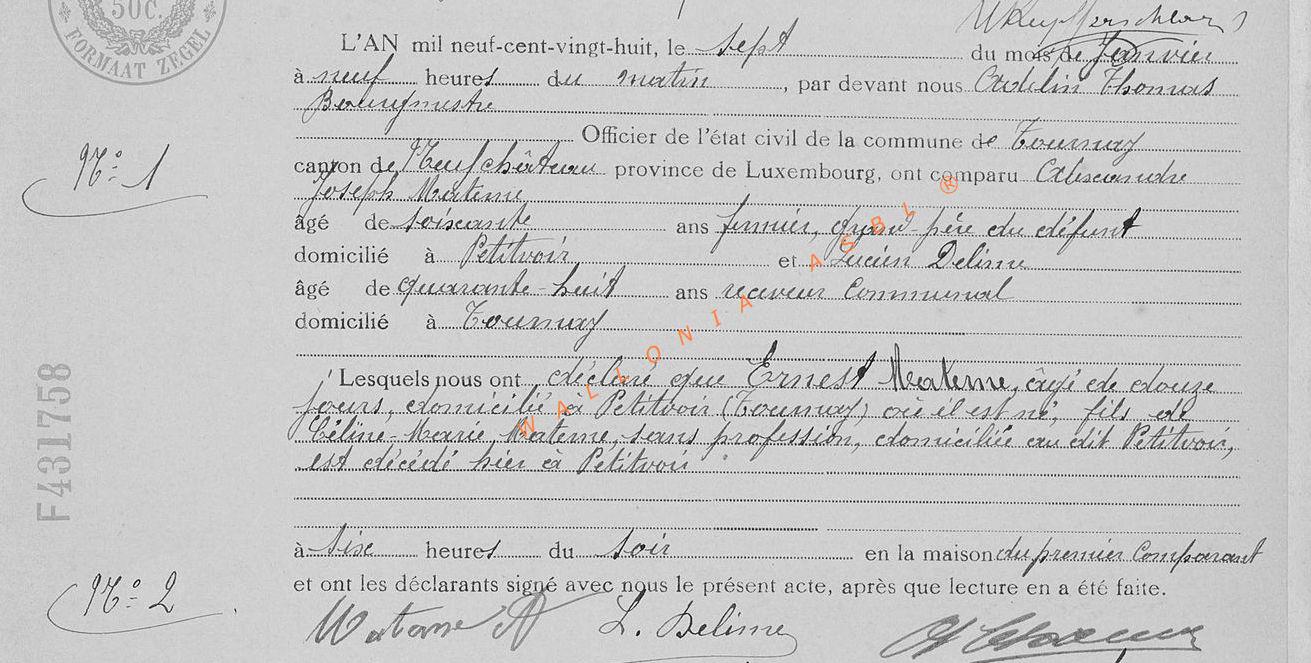 50C.
FORMAAT ZEGEL
L'AN mil neuf-cent-vingt-huit, le sept du mois de Janvier
à neuf heures du matin, par devant nous Cadelin Thomas
Bourgmestre
Officier de l'état civil de la commune de Tournay
N° 1
canton de Neufchâteau province de Luxembourg, ont comparu Alexandre
Joseph Materne
âgé de soixante ans fermier, grand-père du défunt
domicilié à Petitvoir et Lucien Delime
âgé de quarante-huit ans receveur Communal
domicilié à Tournay
WALLONIA ASBL ®
Lesquels nous ont déclaré que Ernest Materne, âgé de douze
jours, domicilié à Petitvoir (Tournay) où il est né, fils de
Céline-Marie Materne, sans profession, domiciliée au dit Petitvoir,
est décédé hier à Petitvoir
F431758
à six heures du soir en la maison du premier Comparant
et ont les déclarants signé avec nous le présent acte, après que lecture en a été faite.
N° 2
Materne A L. Delime